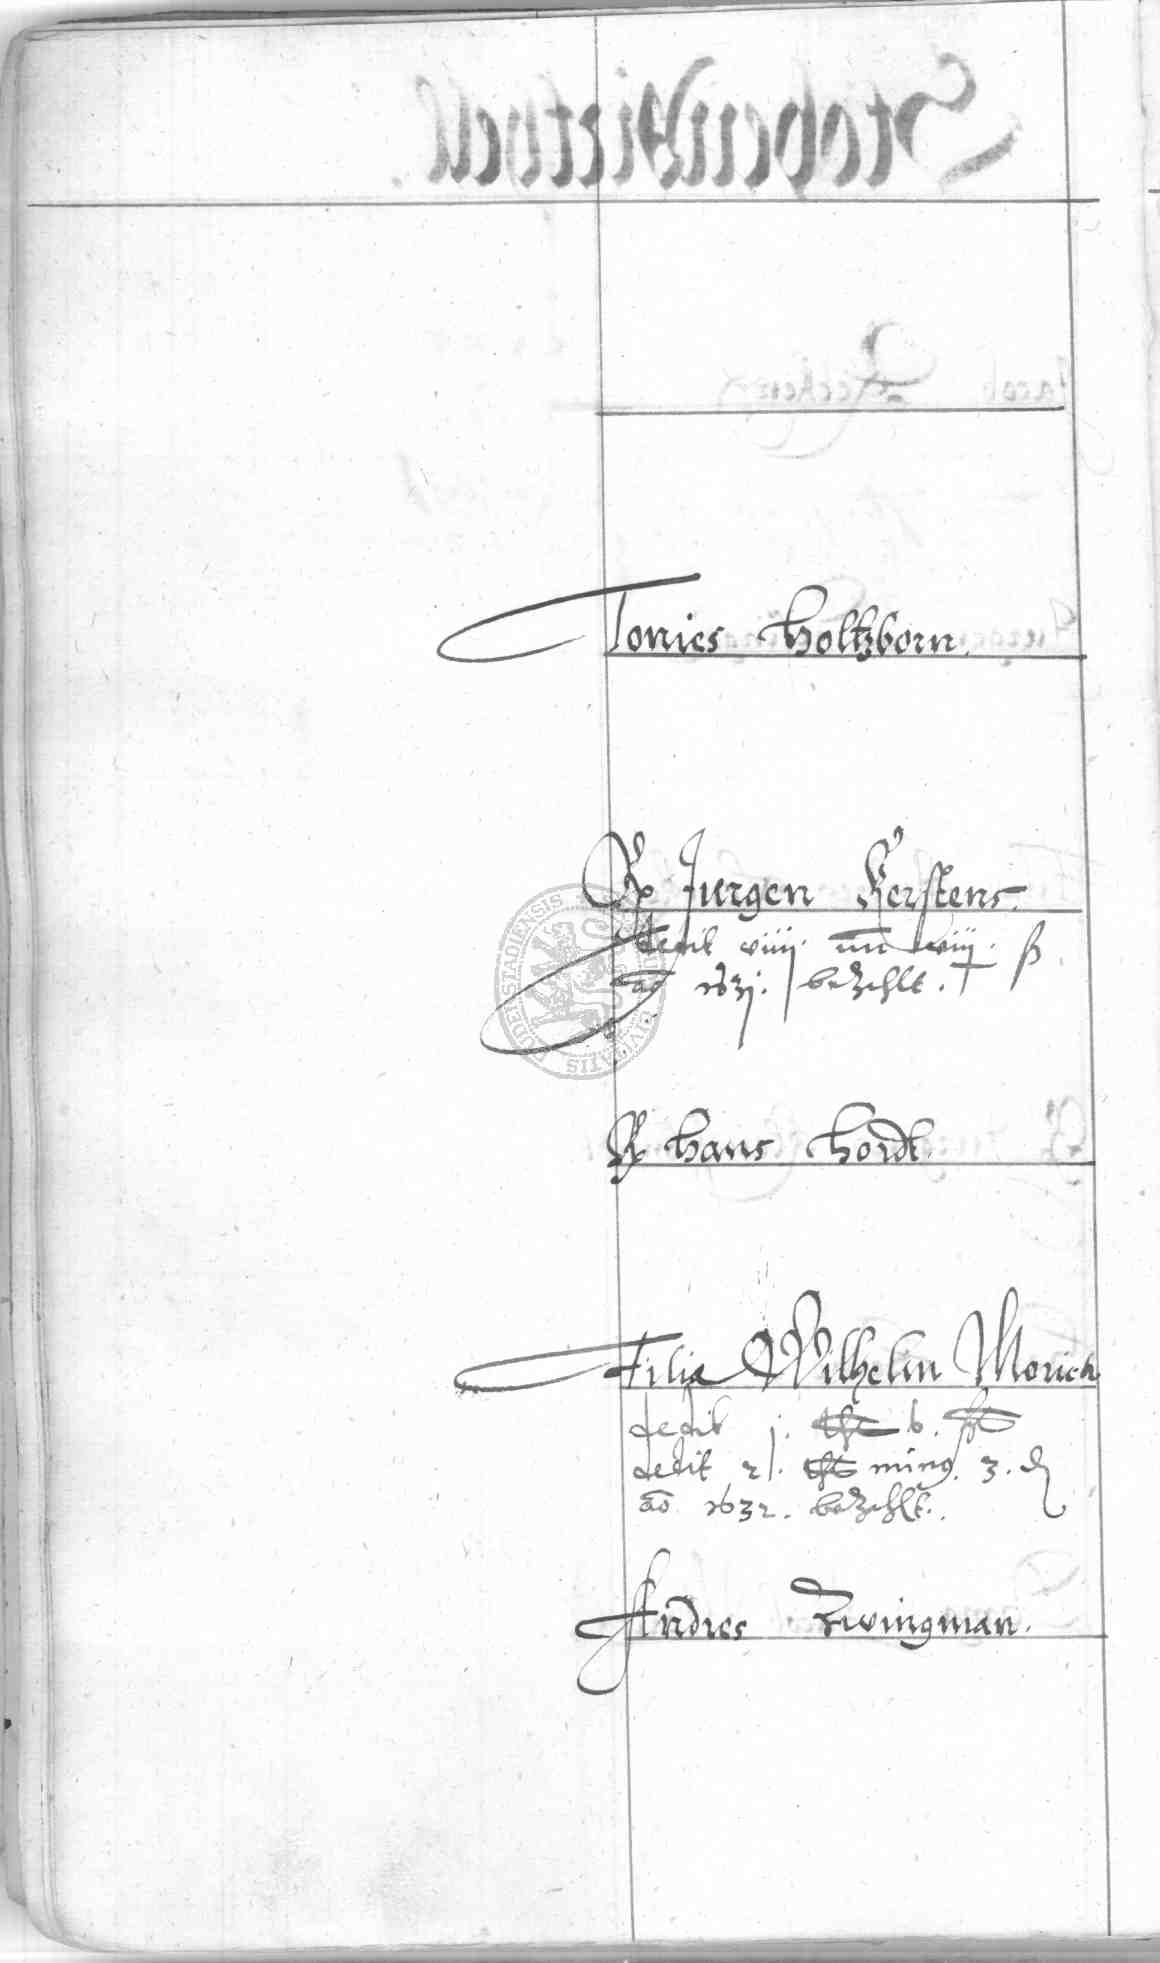 Tonies Holtzborn.
Jurgen Kerstens.
dedit viiij. ß
ao 1631. bezahlt.
Hans Hordt.
Filia Wilhelm Morich
dedit j. 6.
dedit 2 min9 3. ₰
ao 1632. bezahlt.
Andres Zwingman.